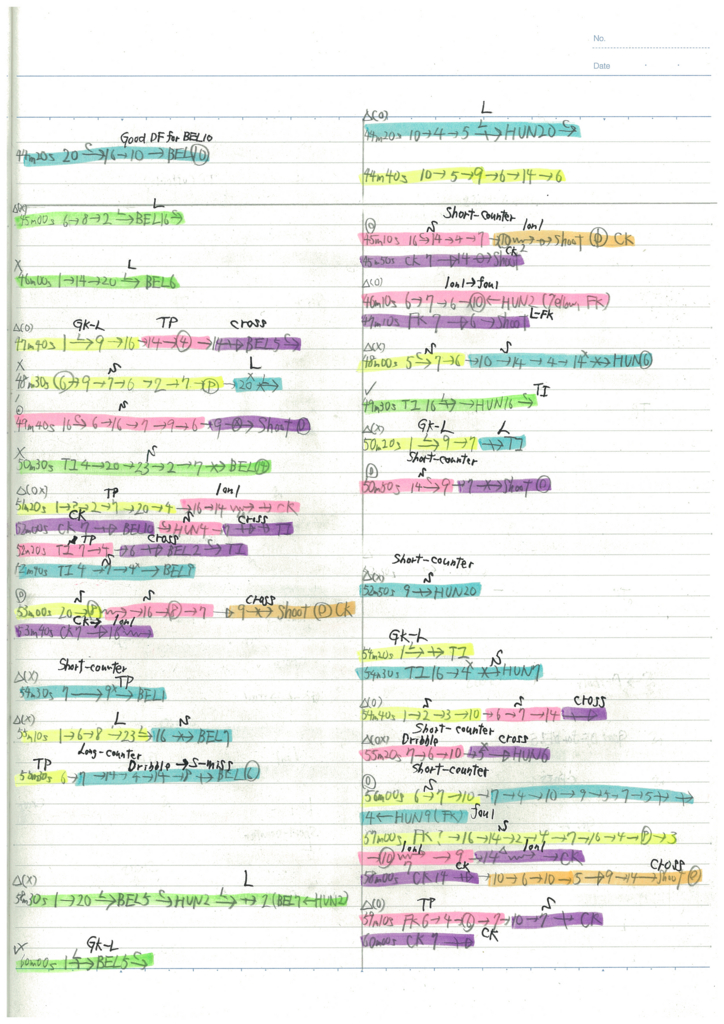 No.
Date
Good DF for BEL10
44m20s 20 → 16 → 10 → BEL10
Δ(X) L
45m00s 6 → 8 → 2 → BEL16
X L
46m00s 1 → 14 → 20 → BEL6
Δ(O) GK-L TP cross
47m40s 1 → 9 → 16 → 14 → 4 → BEL5
X S L
48m30s 6 → 9 → 7 → 6 → 2 → 7 → P → 20
S
49m40s 16 → 6 → 16 → 7 → 9 → 6 → 9 → Shoot
X S
50m30s TI 4 → 20 → 23 → 2 → 7 → BEL
Δ(OX) TP 1on1
51m20s 1 → ? → 2 → 7 → 20 → 4 → 16 → 14 → CK
CK S cross
52m00s CK 7 → BEL10 → HUN4 → TI
TP cross
52m20s TI 7 → 4 → 6 → BEL2 → TI
S
52m40s TI 4 → 7 → 4 → BEL9
S S cross
53m00s 20 → P → 16 → P → 7 → 9 → Shoot P CK
CK → 1on1
53m40s CK 7 → 16
Short-counter
Δ(X) TP
54m30s 7 → 9 → BEL
Δ(X) L S
55m10s 1 → 6 → 8 → 23 → 16 → BEL7
Long-counter
TP Dribble → S-miss
6 → 7 → 14 → 4 → 14 → 8 → BEL6
Δ(X) L
58m30s 1 → 20 → BEL5 → HUN2 → 2 (BEL7 ← HUN2)
GK-L
60m00s 1 → BEL5
Δ(O) L
44m20s 10 → 4 → 5 → HUN20
44m40s 10 → 5 → 9 → 6 → 14 → 6
Short-counter
S 1on1
45m10s 16 → 14 → 4 → 7 → 10 → Shoot CK
CK
45m50s CK 7 → 14 → Shoot
Δ(O) 1on1 → foul
46m10s 6 → 7 → 6 → 10 ← HUN2 (Yellow, FK)
L-FK
47m10s FK 7 → 6 → Shoot
Δ(X) S S
48m00s 5 → 7 → 6 → 10 → 14 → 4 → 14 → HUN6
✓ TI
49m30s TI 16 → HUN16
Δ(X) GK-L L
50m20s 1 → 9 → 7 → TI
Short-counter
S
50m50s 14 → 9 → 7 → Shoot
Short-counter
Δ(X) S
52m50s 9 → HUN20
GK-L
54m20s 1 → TI
S
54m30s TI 16 → 4 → HUN7
Δ(O) S S cross
54m40s 1 → 2 → 3 → 10 → 6 → 7 → 14
Short-counter
Δ(OX) Dribble cross
55m20s 7 → 6 → 10 → 5 → HUN6
Short-counter
S
56m00s 6 → 7 → 10 → 7 → 4 → 10 → 9 → 5 → 7 → 5
4 ← HUN9 (FK) foul
S
57m00s FK ? → 16 → 14 → 2 → 4 → 7 → 16 → 4 → P → 3
1on1 1on1
→ 10 → 9 → 14 → CK
CK cross
58m00s CK 14 → 10 → 6 → 10 → 5 → 9 → 14 → Shoot
Δ(O) TP S
59m10s FK 6 → 4 → 6 → 7 → 10 → 7 → CK
CK
60m00s CK 7